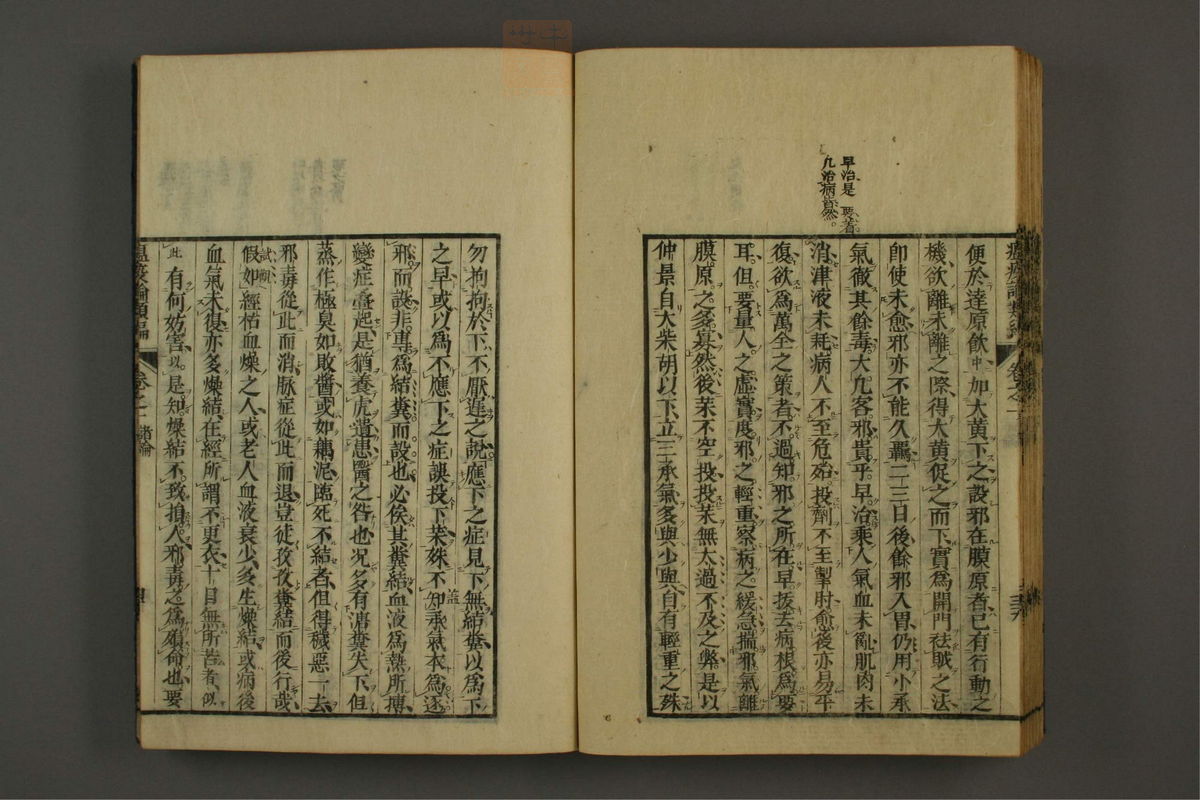 早治是要着
凡治病皆然
便於達原飲中加大黃下之設邪在膜原者已有行動之
機欲離未離之際得大黃促之而下實爲開門祛賊之法
卽使未愈邪亦不能久羈二三日後餘邪入胃仍用小承
氣徹其餘毒大凡客邪貴乎早治乘人氣血未亂肌肉未
消津液未耗病人不至危殆投劑不至掣肘愈後亦易平
復欲爲萬全之策者不過知邪之所在早拔去病根爲要
耳但要量人之虛實度邪之輕重察病之緩急揣邪氣離
膜原之多寡然後藥不空投投藥無太過不及之弊是以
仲景自大柴胡以下立三承氣多與少與自有輕重之殊
勿拘拘於下不厭遲之說應下之症見下無結糞以爲下
之早或以爲不應下之症誤投下藥殊不知承氣本爲逐
邪而設非專爲結糞而設也必俟其糞結血液爲熱所搏
變症疊起是猶養虎遺患醫之咎也况多有溏糞失下但
蒸作極臭如敗醬或如藕泥臨死不結者但得穢惡一去
邪毒從此而消脉症從此而退豈徒孜孜糞結而後行哉
假如經枯血燥之人或老人血液衰少多生燥結或病後
血氣未復亦多燥結在經所謂不更衣十日無所苦者
此有何妨害以是知燥結不致損人邪毒之爲殞命也要
卷之一 諸論